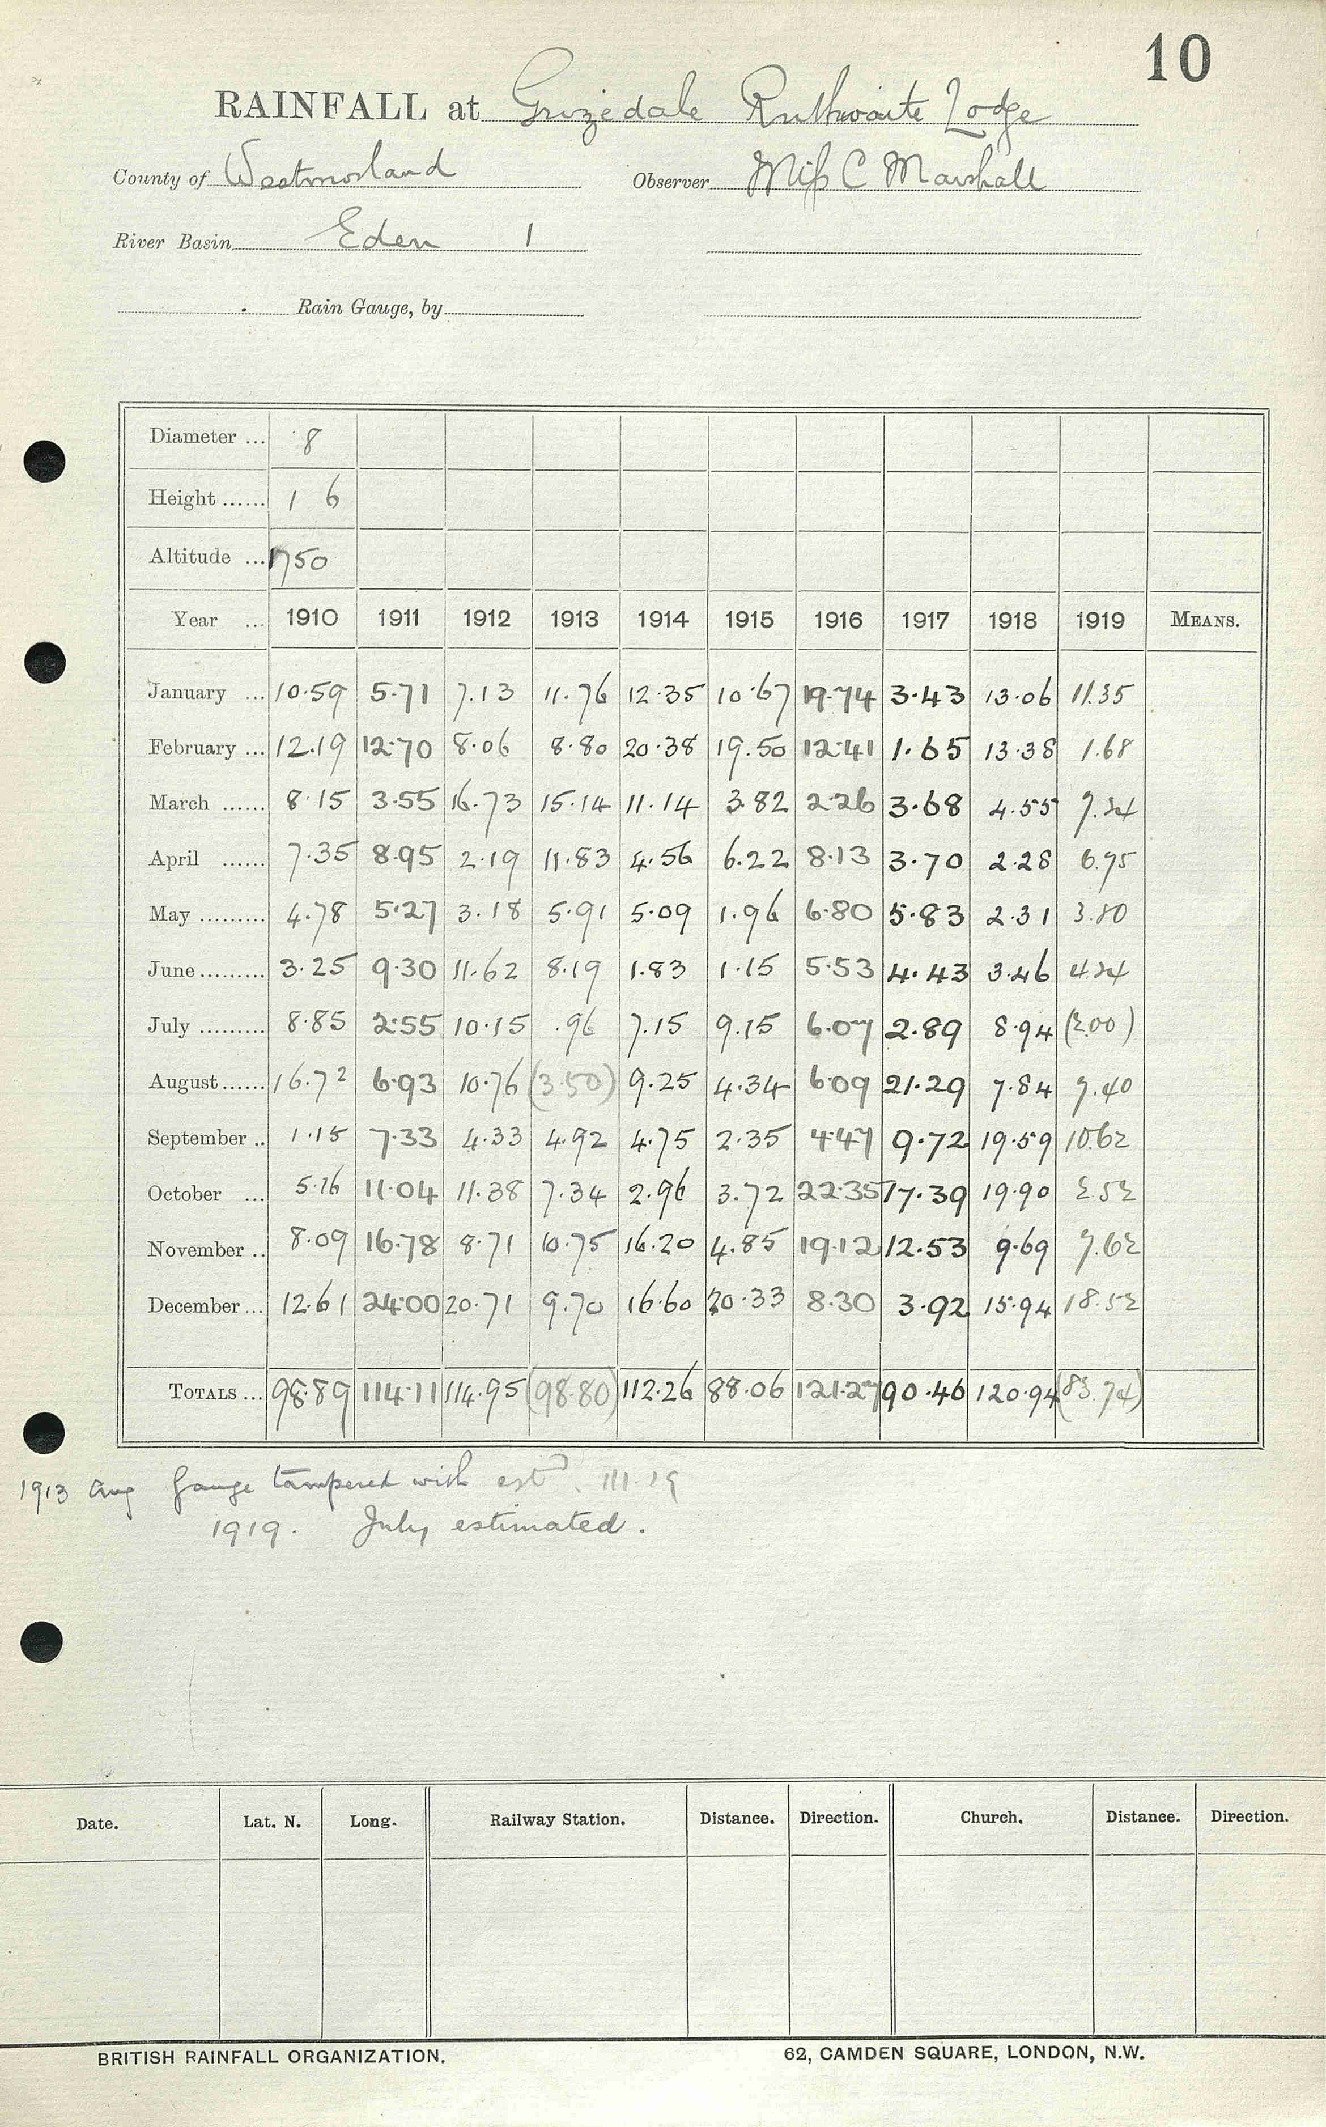 10
RAINFALL at Grizedale Ruthwaite Lodge
County of Westmorland Observer Miss C Marshall
River Basin Eden 1
Rain Gauge, by
Diameter ... 8
Height ...... 1 6
Altitude ... 1750
Year ... 1910 1911 1912 1913 1914 1915 1916 1917 1918 1919 MEANS.
January ... 10.59 5.71 7.13 11.76 12.35 10.67 19.74 3.43 13.06 11.35
February ... 12.19 12.70 8.06 8.80 20.38 19.50 12.41 1.65 13.38 1.68
March ...... 8.15 3.55 16.73 15.14 11.14 3.82 2.26 3.68 4.55 7.24
April ...... 7.35 8.95 2.19 11.83 4.56 6.22 8.13 3.70 2.28 6.75
May ......... 4.78 5.27 3.18 5.91 5.09 1.96 6.80 5.83 2.31 3.80
June ......... 3.25 9.30 11.62 8.19 1.83 1.15 5.53 4.43 3.46 4.24
July ......... 8.85 2.55 10.15 .96 7.15 9.15 6.07 2.89 8.94 (2.00)
August ...... 16.72 6.93 10.76 (3.50) 9.25 4.34 6.09 21.29 7.84 7.40
September .. 1.15 7.33 4.33 4.92 4.75 2.35 4.47 9.72 19.59 10.62
October ... 5.16 11.04 11.38 7.34 2.96 3.72 22.35 17.39 19.90 2.52
November .. 8.09 16.78 8.71 10.75 16.20 4.85 19.12 12.53 9.69 7.62
December ... 12.61 24.00 20.71 9.70 16.60 20.33 8.30 3.92 15.94 18.52
TOTALS ... 98.89 114.11 114.95 (98.80) 112.26 88.06 121.27 90.46 120.94 (83.74)
1913 Aug Gauge tampered with estd.
1919. July estimated.
Date. Lat. N. Long. Railway Station. Distance. Direction. Church. Distance. Direction.
BRITISH RAINFALL ORGANIZATION. 62, CAMDEN SQUARE, LONDON, N.W.